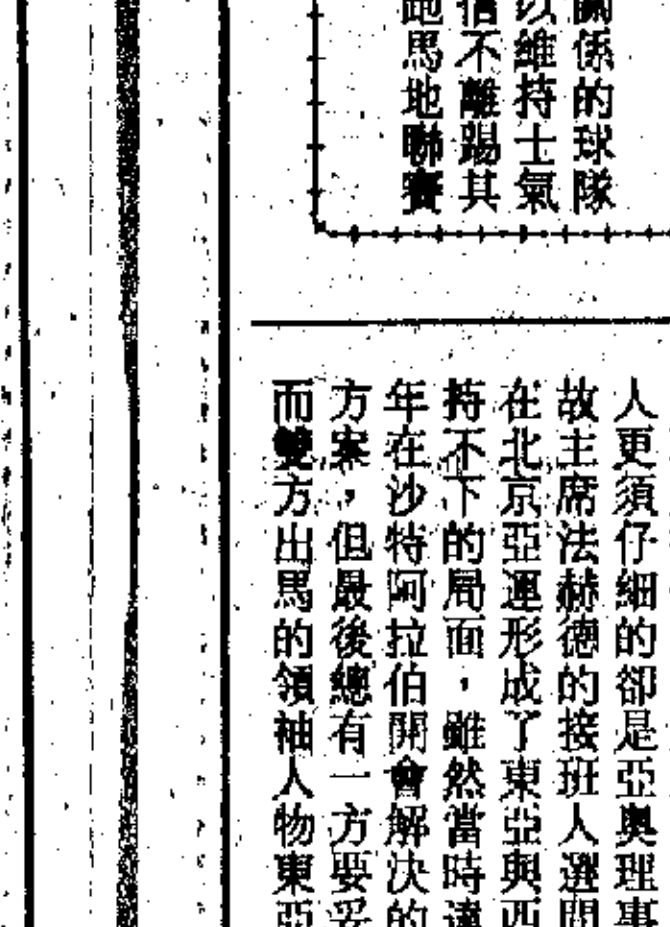 關係的球隊
以維持士氣
信不離踢其
跑馬地聯賽
人更須仔細的卻是亞奧理事
故主席法赫德的接班人選問
在北京亞運形成了東亞與西
持不下的局面，雖然當時達
年在沙特阿拉伯開會解決的
方案，但最後總有一方要妥
而雙方出馬的領袖人物東亞